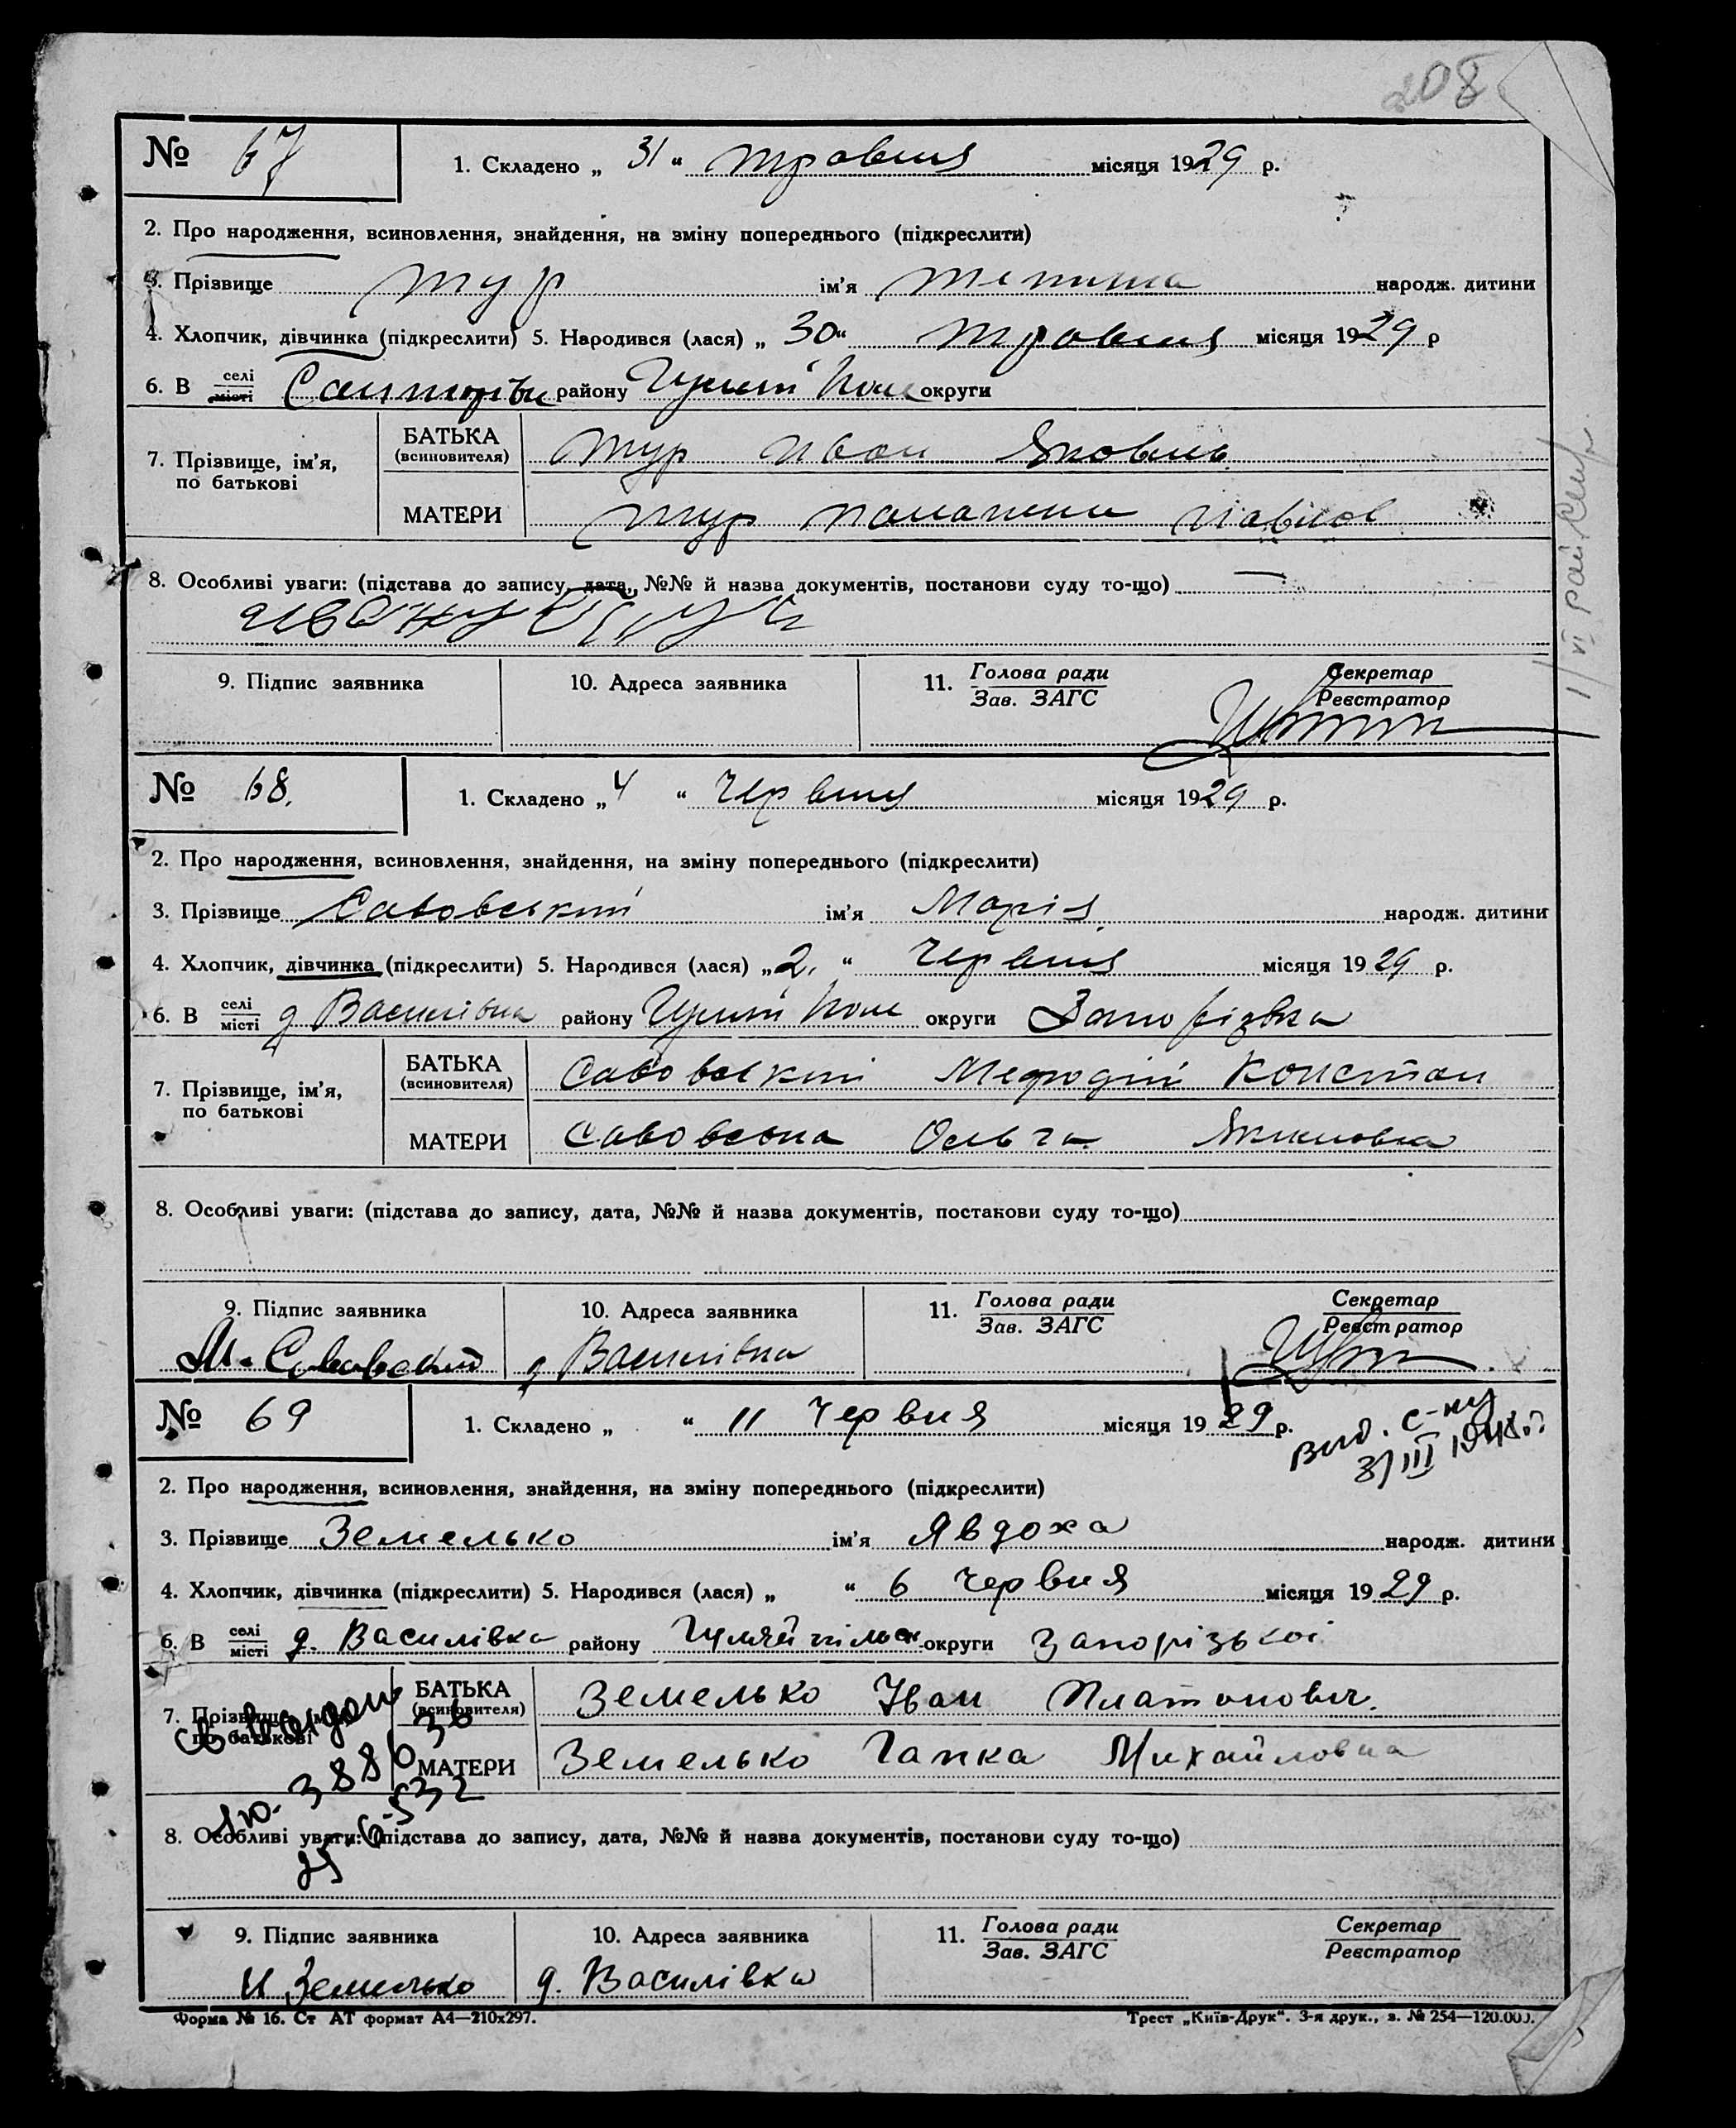 208
№ 67 1. Складено „ 31 “ травня місяця 1929 р.
2. Про народження, всиновлення, знайдення, на зміну попереднього (підкреслити)
3. Прізвище Тур ім'я народж. дитини
4. Хлопчик, дівчинка (підкреслити) 5. Народився (лася) „ 30 “ травня місяця 1929 р
6. В селі місті району Гуляй Поле округи
7. Прізвище, ім'я, по батькові
БАТЬКА (всиновителя) Тур Иван
МАТЕРИ Тур Павлов
8. Особливі уваги: (підстава до запису, дата, №№ й назва документів, постанови суду то-що)
9. Підпис заявника 10. Адреса заявника 11. Голова ради Зав. ЗАГС Секретар Реєстратор
№ 68. 1. Складено „ 4 “ Червня місяця 1929 р.
2. Про народження, всиновлення, знайдення, на зміну попереднього (підкреслити)
3. Прізвище Савовський ім'я Марія народж. дитини
4. Хлопчик, дівчинка (підкреслити) 5. Народився (лася) „ 2 “ Червня місяця 1929 р.
6. В селі місті д Василівка району Гуляй Поле округи
7. Прізвище, ім'я, по батькові
БАТЬКА (всиновителя) Савовський Мефодій Констан
МАТЕРИ Савовська Ольга
8. Особливі уваги: (підстава до запису, дата, №№ й назва документів, постанови суду то-що)
9. Підпис заявника 10. Адреса заявника 11. Голова ради Зав. ЗАГС Секретар Реєстратор
М. Савовский д Василівка
№ 69 1. Складено „ “ 11 Червня місяця 1929 р.
3/III 1948 г.
2. Про народження, всиновлення, знайдення, на зміну попереднього (підкреслити)
3. Прізвище Земелько ім'я Явдоха народж. дитини
4. Хлопчик, дівчинка (підкреслити) 5. Народився (лася) „ “ 6 Червня місяця 1929 р.
6. В селі місті д. Василівка району округи Запорізької
7. Прізвище, ім'я, по батькові
БАТЬКА (всиновителя) Земелько Іван Платонович.
МАТЕРИ Земелько Гапка Михайловна
8. Особливі уваги: (підстава до запису, дата, №№ й назва документів, постанови суду то-що)
9. Підпис заявника 10. Адреса заявника 11. Голова ради Зав. ЗАГС Секретар Реєстратор
И Земелько д. Василівка
Форма № 16. Ст АТ формат А4—210х297. Трест „Київ-Друк“. 3-я друк., з. № 254—120.000.